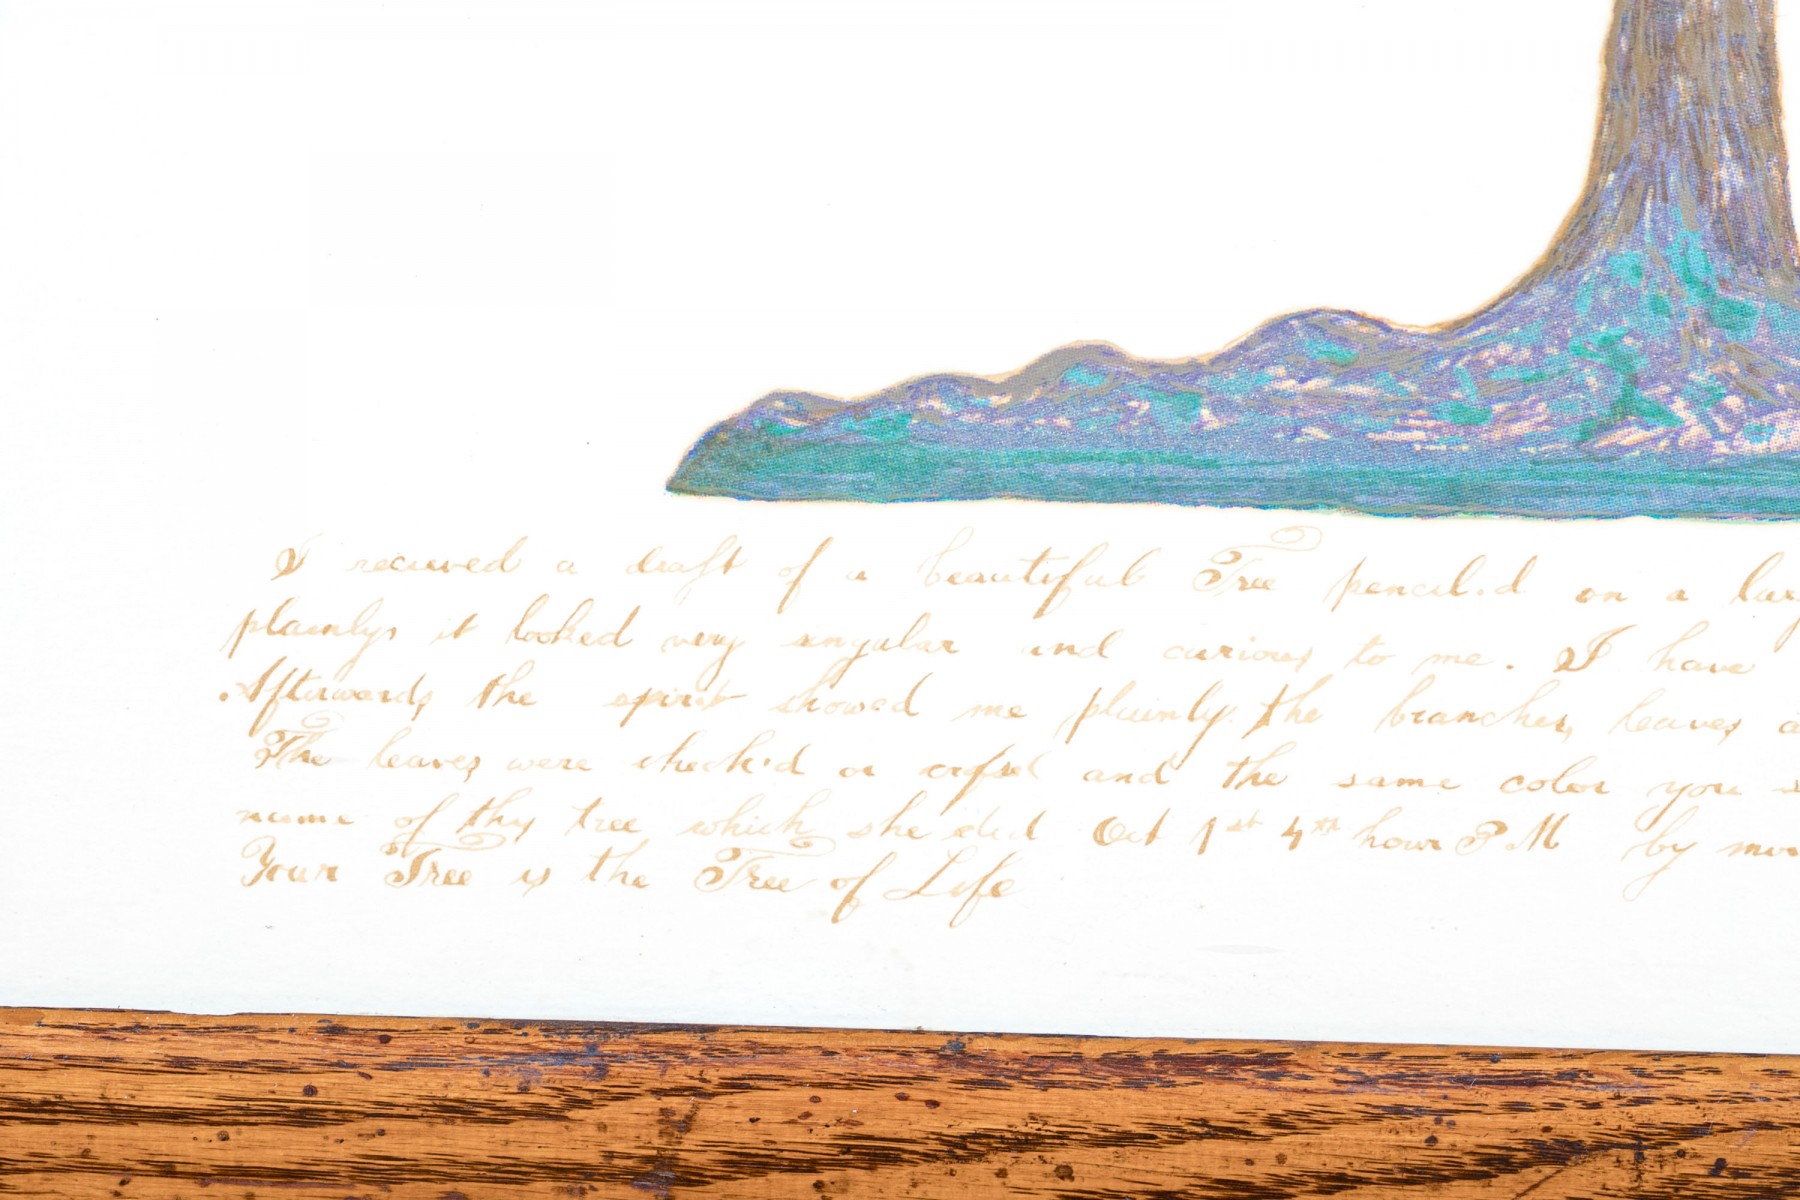 I received a draft of a beautiful Tree pencil.d on a
plainly, it looked very singular and curious to me. I have
Afterwards the spirit showed me plainly the branches, leaves
The leaves were check'd or and the same color you
name of thy tree which she did Oct 1st 4th hour P.M by
Your Tree is the Tree of Life